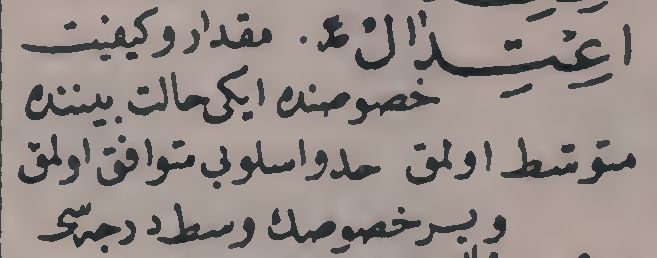 اِعْتِدَالْ ع. مقدار وكيفيت
خصوصنده ايكى حالت بيننده
متوسط اولمق حد و اسلوبى متوافق اولمق
و بر خصوصك وسط درجه‌سى